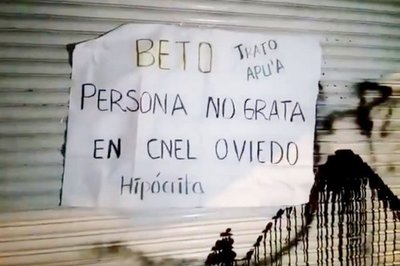 BETO TRATO
APU'A
PERSONA NO GRATA
EN CNEL OVIEDO
Hipócrita